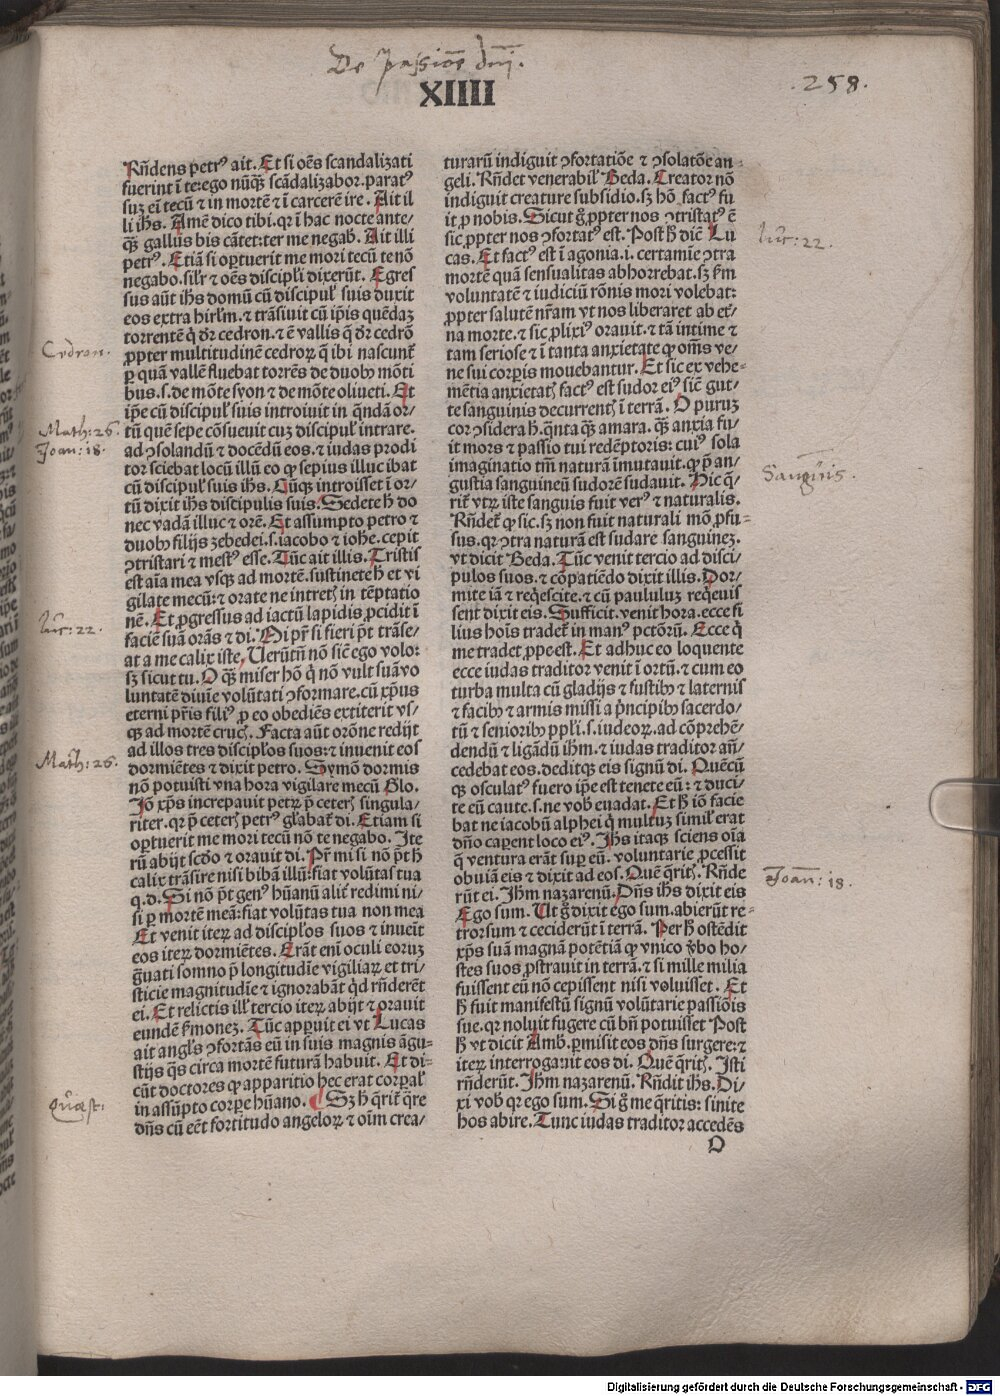 De passiõe dñi.
XIIII
.258.
Rñdens petrꝰ ait. Et si oẽs scandalizati
fuerint ĩ te: ego nũq̃ʒ scãdalizabor. paratꝰ
suʒ eĩ tecũ ⁊ in mortẽ ⁊ ĩ carcerẽ ire. Ait il
li ihs. Amẽ dico tibi. qꝛ ĩ hac nocte ante⸗
q̃ʒ gallus bis cãtet: ter me negab̃. Ait illi
petrꝰ. Etiã si oꝑtuerit me mori tecũ te nõ
negabo. silꝛ ⁊ oẽs discipłi dixerũt. Egres
sus aũt ihs domũ cũ discipuł suis duxit
eos extra hirłm. ⁊ trãsiuit cũ ip̃is quẽdaʒ
torrentẽ q̇ dr̃ cedron. ⁊ ẽ vallis q̃ dr̃ cedrõ
ꝓpter multitudinẽ cedroꝝ q̃ ibi nascunt̃
ꝑ quã vallẽ fluebat torrẽs de duobꝰ mõti
bus. s. de mõte syon ⁊ de mõte oliueti. Et
ip̃e cũ discipuł suis introiuit in q̃ndã oꝛ/
tũ quẽ sepe cõsueuit cuʒ discipuł intrare.
ad ꝯsolandũ ⁊ docẽdũ eos. ⁊ iudas prodi
tor sciebat locũ illũ eo ꝙ sepius illuc ibat
cũ discipuł suis ihs. Cũq̃ʒ introisset ĩ oꝛ/
tũ dixit ihs discipulis suis. Sedete h̃ do
nec vadã illuc ⁊ orẽ. Et assumpto petro ⁊
duobꝰ filijs zebedei. s. iacobo ⁊ ioh̃e. cepit
ꝯtristari ⁊ mestꝰ esse. Tũc ait illis. Tristis
est aĩa mea vsq̃ʒ ad mortẽ. sustinete h̃ et vi
gilate mecũ: ⁊ orate ne intretꝭ in tẽptatio
nẽ. Et ꝓgressus ad iactũ lapidis ꝓcidit ĩ
faciẽ suã orãs ⁊ di. Mi pr̃ si fieri põt trãse/
at a me calix iste. Uerũtñ nõ siẽ ego volo:
sʒ sicut tu. O q̃ʒ miser hõ q̇ nõ vult suã vo
luntatẽ diuĩe volũtati ꝯformare. cũ xp̃us
eterni pr̃is filiꝰ ꝓ eo obediẽs extiterit vs/
q̃ʒ ad mortẽ crucꝭ. Facta aũt orõne redijt
ad illos tres discipłos suos: ⁊ inuenit eos
dormiẽtes ⁊ dixit petro. Symõ dormis
nõ potuisti vna hora vigilare mecũ Glo.
Iõ xp̃s increpauit petꝝ p̃ ceterꝭ singula/
riter. qꝛ p̃ ceterꝭ petrꝰ głabat̃ di. Etiam si
oꝑtuerit me mori tecũ nõ te negabo. Ite
rũ abijt scd̃o ⁊ orauit di. Pr̃ mi si nõ põt h̃
calix trãsire nisi bibã illũ: fiat volũtas tua
q. d. Si nõ põt genꝰ hũanũ alit̃ redimi ni/
si ꝑ mortẽ meã: fiat volũtas tua non mea
Et venit iteꝝ ad discipłos suos ⁊ inueit
eos iteꝝ dormiẽtes. Erãt enĩ oculi eoruʒ
g̃uati somno p̃ longitudĩe vigiliaꝝ et tri/
sticie magnitudĩe ⁊ ignorabãt q̇d rñderẽt
ei. Et relictis ill̃ tercio iteꝝ abijt ⁊ orauit
eundẽ ẜmoneʒ. Tũc apꝑuit ei vt Lucas
ait angłs ꝯfortãs eũ in suis magnis ãgu⸗
stijs q̃s circa mortẽ futurã habuit. Et di⸗
cũt doctores ꝙ apparitio hec erat corꝑał
in assũpto corꝑe hũano. ¶ Sʒ h̃ q̃rit̃ q̃re
dñs cũ eẽt fortitudo angeloꝝ ⁊ oĩm crea/
turarũ indiguit ꝯfortatiõe ⁊ ꝯsolatõe an⸗
geli. Rñdet venerabił Beda. Creator nõ
indiguit creature subsidio. sʒ hõ factꝰ fu
it ꝓ nobis. Sicut g̃ ꝓpter nos ꝯtristatꝰ ẽ
sic ꝓpter nos ꝯfortatꝰ est. Post h̃ diẽ Lu
cas. Et factꝰ est ĩ agonia. i. certamĩe ꝯtra
mortẽ quã sensualitas abhorrebat. sʒ ẜm
voluntatẽ ⁊ iudiciũ rõnis mori volebat:
ꝓpter salutẽ nr̃am vt nos liberaret ab et̃/
na morte. ⁊ sic ꝓlixiꝰ orauit. ⁊ tã intime ⁊
tam seriose ⁊ ĩ tanta anxietate ꝙ om̃s ve/
ne sui corꝑis mouebantur. Et sic ex vehe⸗
mẽtia anxietatꝭ factꝰ est sudor eiꝰ siẽ gut/
te sanguinis decurrentꝭ ĩ terrã. O puruʒ
cor ꝯsidera h̃. q̃nta q̃ʒ amara. q̃ʒ anxia fu/
it mors ⁊ passio tui redẽptoris: cuiꝰ sola
imaginatio tm̃ naturã imutauit. ꝙ p̃ an/
gustia sanguineũ sudorẽ sudauit. Hic q̃/
rit̃ vtꝝ iste sanguis fuit verꝰ ⁊ naturalis.
Rñdet̃ ꝙ sic. sʒ non fuit naturali mõ ꝓfu⸗
sus. qꝛ ꝯtra naturã est sudare sanguineʒ.
vt dicit Beda. Tũc venit tercio ad disci/
pulos suos. ⁊ cõpatiẽdo dixit illis. Dor/
mite iã ⁊ req̇escite. ⁊ cũ paululuʒ req̇euis
sent dixit eis. Sufficit. venit hora. ecce fi
lius hoĩs tradet̃ in manꝰ pctõrũ. Ecce q̇
me tradet ꝓpe est. Et adhuc eo loquente
ecce iudas traditor venit ĩ ortũ. ⁊ cum eo
turba multa cũ gladijs ⁊ fustibꝰ ⁊ laternis
⁊ facibꝰ ⁊ armis missi a p̃ncipibꝰ sacerdo/
tũ ⁊ senioribꝰ ppłi. s. iudeoꝝ. ad cõprehẽ/
dendũ ⁊ ligãdũ ihm̃. ⁊ iudas traditor añ/
cedebat eos. deditq̃ʒ eis signũ di. Quẽcũ
q̃ʒ osculatꝰ fuero ip̃e est tenete eũ: ⁊ duci/
te eũ caute. s. ne vob̃ euadat. Et h̃ iõ facie
bat ne iacobũ alphei q̇ multuʒ simił erat
dño caꝑent loco eiꝰ. Ihs itaq̃ʒ sciens oĩa
q̃ ventura erãt suꝑ eũ. voluntarie ꝓcessit
obuiã eis ⁊ dixit ad eos. Quẽ q̃ritꝭ. Rñde
rũt ei. Ihm̃ nazarenũ. Dñs ihs dixit eis
Ego sum. Ut g̃ dixit ego sum. abierũt re⸗
trorsum ⁊ ceciderũt ĩ terrã. Per h̃ ostẽdit
xp̃s suã magnã potẽtiã ꝙ vnico ṽbo ho/
stes suos ꝓstrauit in terrã. ⁊ si mille milia
fuissent eũ nõ cepissent nisi voluisset. Et
h̃ fuit manifestũ signũ volũtarie passiõis
sue. qꝛ noluit fugere cũ bñ potuisset Post
h̃ vt dicit Amb. ꝑmisit eos dñs surgere: ⁊
iteꝝ interrogauit eos di. Quẽ q̃ritꝭ. Isti
rñderũt. Ihm̃ nazarenũ. Rñdit ihs. Di/
xi vob̃ qꝛ ego sum. Si g̃ me q̃ritis: sinite
hos abire. Tunc iudas traditor accedẽs
O
Cedron.
Math: 26.
Joan: 18.
luc: 22.
Math: 26.
Quæst:
luc: 22.
Sanguis.
Joan: 18.
Digitalisierung gefördert durch die Deutsche Forschungsgemeinschaft - DFG